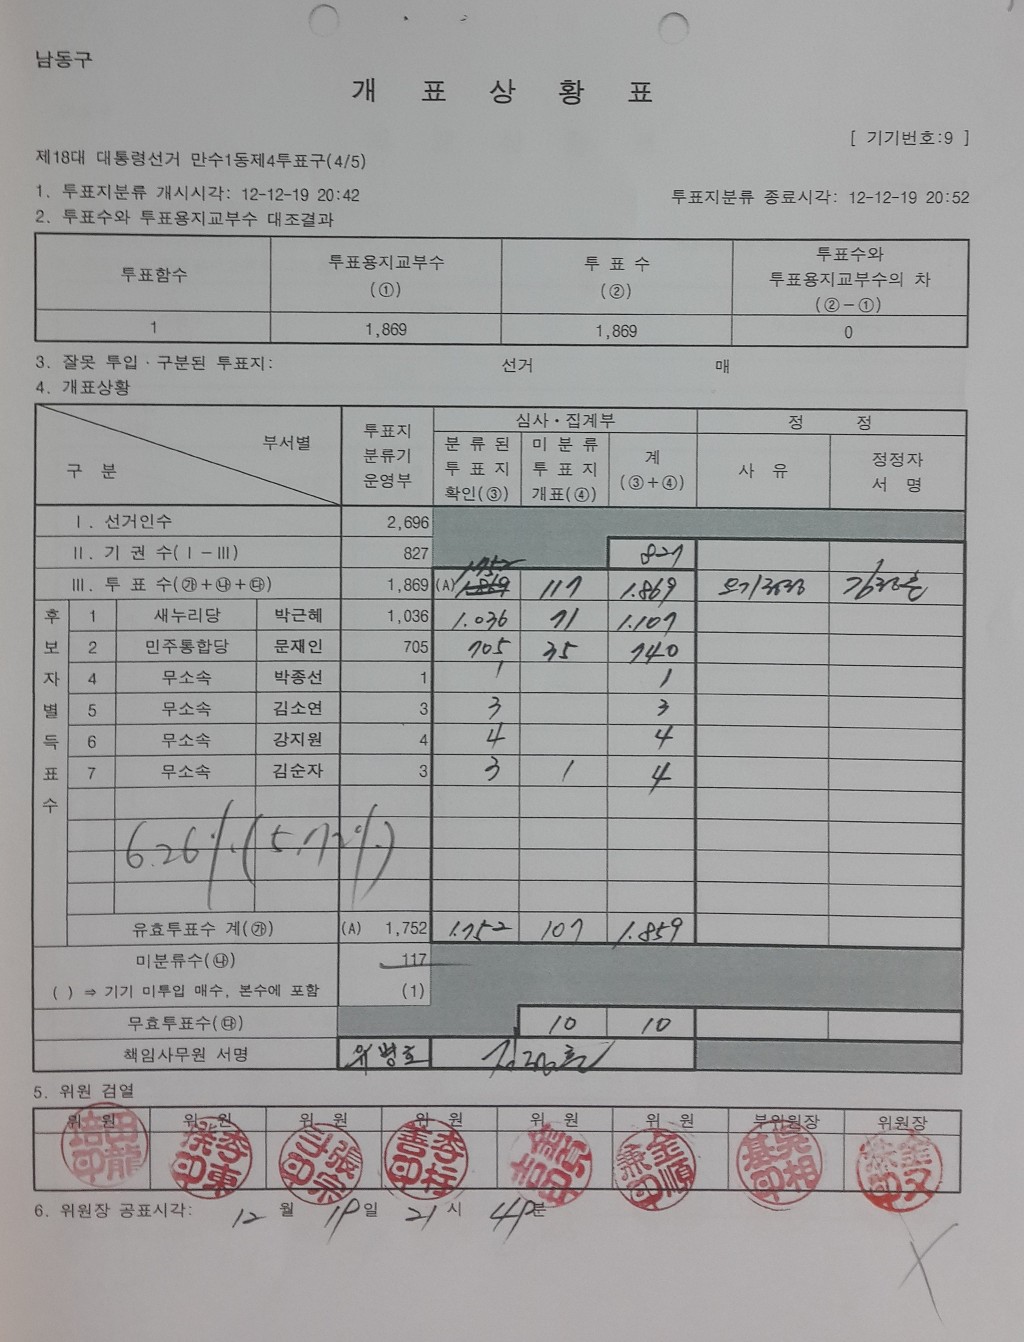 남동구
개 표 상 황 표
[ 기기번호:9 ]
제18대 대통령선거 만수1동제4투표구(4/5)
1. 투표지분류 개시시각: 12-12-19 20:42 투표지분류 종료시각: 12-12-19 20:52
2. 투표수와 투표용지교부수 대조결과
투표함수 투표용지교부수 (①) 투 표 수 (②) 투표수와 투표용지교부수의 차 (②-①)
1 1,869 1,869 0
3. 잘못 투입·구분된 투표지: 선거 매
4. 개표상황
부서별 구 분 투표지 분류기 운영부 심사·집계부 정 정
분 류 된 투 표 지 확인(③) 미 분 류 투 표 지 개표(④) 계 (③+④) 사 유 정정자 서 명
Ⅰ. 선거인수 2,696
Ⅱ. 기 권 수(Ⅰ-Ⅲ) 827 827
1.752
Ⅲ. 투 표 수(㉮+㉯+㉰) 1,869 (A) 1.869 117 1.869 오기정정
후보자별득표수
1 새누리당 박근혜 1,036 1.036 71 1.107
2 민주통합당 문재인 705 705 35 740
4 무소속 박종선 1 1 1
5 무소속 김소연 3 3 3
6 무소속 강지원 4 4 4
7 무소속 김순자 3 3 1 4
6.26%(5.72%)
유효투표수 계(㉮) (A) 1,752 1.752 107 1.859
미분류수(㉯) 117
( ) ⇒ 기기 미투입 매수, 본수에 포함 (1)
무효투표수(㉰) 10 10
책임사무원 서명
5. 위원 검열
위 원 위 원 위 원 위 원 위 원 위 원 부위원장 위원장
6. 위원장 공표시각: 12 월 19 일 21 시 49 분